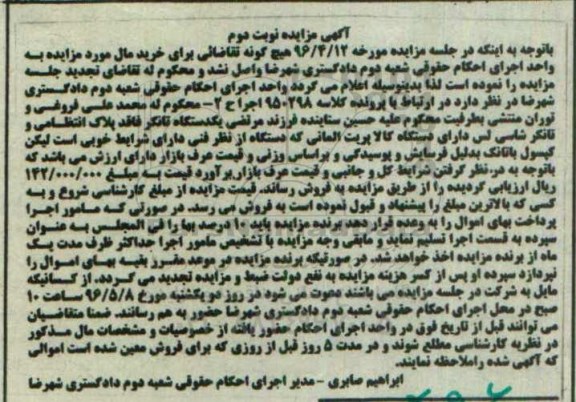 آگهی مزایده نوبت دوم
باتوجه به اینکه در جلسه مزایده مورخه ۹۶/۴/۱۲ هیچ گونه تقاضائی برای خرید مال مورد مزایده به
واحد اجرای احکام حقوقی شعبه دوم دادگستری شهرضا واصل نشد و محکوم له تقاضای تجدید جلسه
مزایده را نموده است لذا بدینوسیله اعلام می گردد واحد اجرای احکام حقوقی شعبه دوم دادگستری
شهرضا در نظر دارد در ارتباط با پرونده کلاسه ۹۵۰۲۹۸ اجرا ح ۲- محکوم له محمد علی فروغی و
توران منتشی بطرفیت محکوم علیه حسین ستاینده فرزند مرتضی یکدستگاه تانکر فاقد پلاک انتظامی و
تانکر شاسی لس دارای دستگاه کالا پریت المانی که دستگاه از نظر فنی دارای شرایط خوبی است لیکن
کپسول باتانک بدلیل فرسایش و پوسیدگی و براساس وزنی و قیمت عرف بازار دارای ارزش می باشد که
باتوجه به در نظر گرفتن شرایط کل و جانبی و قیمت عرف بازار برآورد قیمت به مبلغ ۱۴۲/۰۰۰/۰۰۰
ریال ارزیابی گردیده را از طریق مزایده به فروش رساند. قیمت مزایده از مبلغ کارشناسی شروع و به
کسی که بالاترین مبلغ را پیشنهاد و قبول نموده است به فروش می رسد. در صورتی که مامور اجرا
پرداخت بهای اموال را به وعده قرار دهد برنده مزایده باید ۱۰ درصد بها را فی المجلس به عنوان
سپرده به قسمت اجرا تسلیم نماید و مابقی وجه مزایده با تشخیص مامور اجرا حداکثر ظرف مدت یک
ماه از برنده مزایده اخذ خواهد شد. در صورتیکه برنده مزایده در موعد مقرر بقیه بهای اموال را
نپردازد سپرده او پس از کسر هزینه مزایده به نفع دولت ضبط و مزایده تجدید می گردد. از کسانیکه
مایل به شرکت در جلسه مزایده می باشند دعوت می شود در روز دو یکشنبه مورخ ۹۶/۵/۸ ساعت ۱۰
صبح در محل اجرای احکام حقوقی شعبه دوم دادگستری شهرضا حضور به هم رسانند. ضمنا متقاضیان
می توانند قبل از تاریخ فوق در واحد اجرای احکام حضور یافته از خصوصیات و مشخصات مال مذکور
در نظریه کارشناسی مطلع شوند و در مدت ۵ روز قبل از روزی که برای فروش معین شده است اموالی
که آگهی شده راملاحظه نمایند.
ابراهیم صابری - مدیر اجرای احکام حقوقی شعبه دوم دادگستری شهرضا